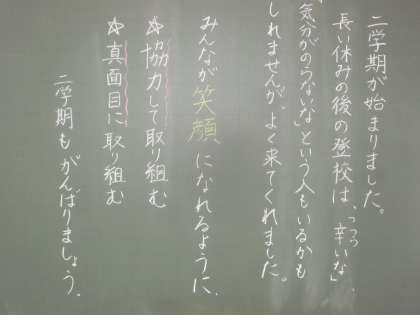 二学期が始まりました。
長い休みの後の登校は、「辛いな」、
「気分がのらないな」という人もいるかも
しれませんが、よく来てくれました。
みんなが笑顔になれるように、
☆協力して取り組む
☆真面目に取り組む
二学期もがんばりましょう。